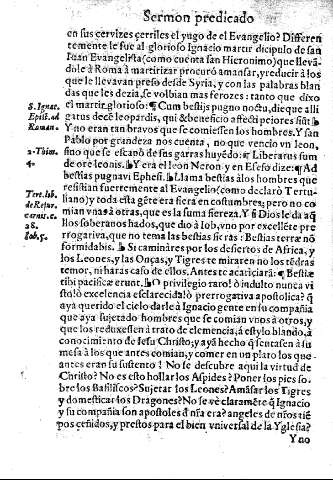 Sermon predicado
en sus cervizes çerriles el yugo de el Euangelio? Differen
temente le fue al glorioso Ignacio martir dicipulo de san
Iuan Euangelista (como cuenta san Hieronimo) que lleuã
dole à Roma à martirizar procuró amansar, y reducir à los
que le lleuauan preso desde Syria, y con las palabras blan
das que les dezia, se voluian mas ferozes: tanto que dixo
S. Ignac.
el martir glorioso: ¶ Cum bestijs pugno noctu, die que alli
Epist. ad
gatus decẽ leopardis, qui & beneficio affecti peiores siũt.
Roman.
Y no eran tan brauos que se comiessen los hombres. Y san
Pablo por grandeza nos cuenta, no que vencio vn leon,
2. Thim.
sino que se escapò de sus garras huyẽdo: ¶ Liberatus sum
4.
de ore leonis. Y era el leon Neron. y en Efeso dize: ¶ Ad
bestias pugnaui Ephesi. Llama bestias à los hombres que
resistian fuertemente al Euangelio (como declarò Tertu-
Tert. lib.
liano) y toda esta gẽte era fiera en costumbres; pero no co
de Resur.
mian vnas à otras, que es la suma fiereza. Y si Dios le da aq̃
carnis. c.
los soberanos hados, que dio à Iob, vno por excellẽte pre
28.
rrogatiua, que no tema las bestias fieras: Bestias terræ nõ
Iob. 5.
formidabis. Si caminâres por los desiertos de Africa, y
los Leones, y las Onças, y Tigres te miraren no los tẽdras
temor, ni haras caso de ellos. Antes te acariciarà: ¶ Bestiæ
tibi pacificæ erunt. O priuilegio raro! ò indulto nunca vi
sto! ò excelencia esclarecida! ò prerrogatiua apostolica? q̃
aya querido el cielo darle à Ignacio gente en su compañia
que aya sujetado hombres que se comian vnos à otros, y
que los reduxessen à trato de clemencia, à estylo blando, à
conocimiento de Iesu Christo; y aya hecho q̃ se sentasen à su
mesa à los que antes comian, y comer en vn plato los que
antes eran su sustento! No se descubre aqui la virtud de
Christo? No es esto hollar los Aspides? Poner los pies so-
bre los Basiliscos? Sujetar los Leones? Amãsar los Tigres
y domesticar los Dragones? No se vè claramẽte q̃ Ignacio
y su compañia son apostoles d̃ nr̃a era? angeles de nr̃os tiẽ
pos ceñidos, y prestos para el bien vniuersal de la Yglesia?
Y no